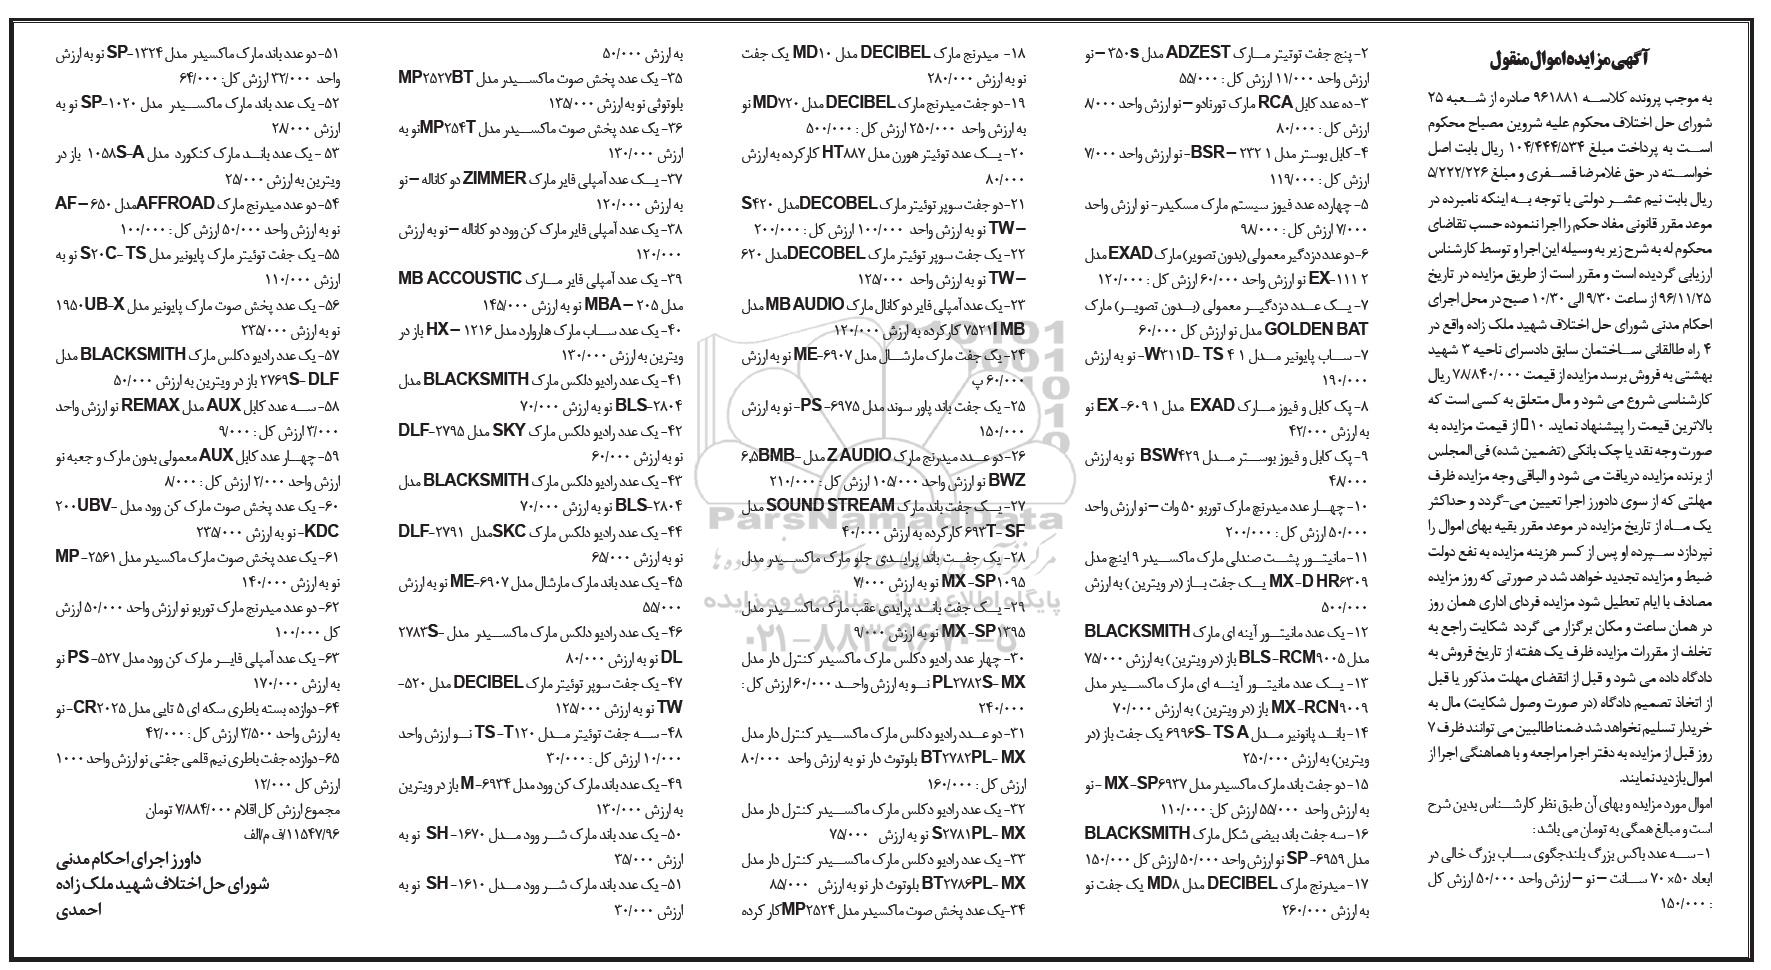 آگهی مزایده اموال منقول
به موجب پرونده کلاسه ۹۶۱۸۸۱ صادره از شعبه ۲۵
شورای حل اختلاف محکوم علیه شروین مصباح محکوم
است به پرداخت مبلغ ۱۰۴/۴۴۴/۵۳۴ ریال بابت اصل
خواسته در حق غلامرضا قسفری و مبلغ ۵/۲۲۲/۲۲۶
ریال بابت نیم عشر دولتی با توجه به اینکه نامبرده در
موعد مقرر قانونی مفاد حکم را اجرا ننموده حسب تقاضای
محکوم له به شرح زیر به وسیله این اجرا و توسط کارشناس
ارزیابی گردیده است و مقرر است از طریق مزایده در تاریخ
۹۶/۱۱/۲۵ از ساعت ۹/۳۰ الی ۱۰/۳۰ صبح در محل اجرای
احکام مدنی شورای حل اختلاف شهید ملک زاده واقع در
۴ راه طالقانی ساختمان سابق دادسرای ناحیه ۳ شهید
بهشتی به فروش برسد مزایده از قیمت ۷۸/۸۴۰/۰۰۰ ریال
کارشناسی شروع می شود و مال متعلق به کسی است که
بالاترین قیمت را پیشنهاد نماید. ۱۰ از قیمت مزایده به
صورت وجه نقد یا چک بانکی (تضمین شده) فی المجلس
از برنده مزایده دریافت می شود و الباقی وجه مزایده ظرف
مهلتی که از سوی دادورز اجرا تعیین می-گردد و حداکثر
یک ماه از تاریخ مزایده در موعد مقرر بقیه بهای اموال را
نپردازد سپرده او پس از کسر هزینه مزایده به نفع دولت
ضبط و مزایده تجدید خواهد شد در صورتی که روز مزایده
مصادف با ایام تعطیل شود مزایده فردای اداری همان روز
در همان ساعت و مکان برگزار می گردد شکایت راجع به
تخلف از مقررات مزایده ظرف یک هفته از تاریخ فروش به
دادگاه داده می شود و قبل از انقضای مهلت مذکور یا قبل
از اتخاذ تصمیم دادگاه (در صورت وصول شکایت) مال به
خریدار تسلیم نخواهد شد ضمنا طالبین می توانند ظرف ۷
روز قبل از مزایده به دفتر اجرا مراجعه و با هماهنگی اجرا از
اموال بازدید نمایند.
اموال مورد مزایده و بهای آن طبق نظر کارشناس بدین شرح
است و مبالغ همگی به تومان می باشد :
۱- سه عدد باکس بزرگ بلندجگوی ساب بزرگ خالی در
ابعاد ۵۰×۷۰ سانت – نو – ارزش واحد ۵۰/۰۰۰ ارزش کل
: ۱۵۰/۰۰۰
۲- پنج جفت توئیتر مارک ADZEST مدل ۳۵۰s – نو
ارزش واحد ۱۱/۰۰۰ ارزش کل : ۵۵/۰۰۰
۳- ده عدد کابل RCA مارک تورنادو – نو ارزش واحد ۸/۰۰۰
ارزش کل : ۸۰/۰۰۰
۴- کابل بوستر مدل ۱ ۲۳۲ – BSR- نو ارزش واحد ۷/۰۰۰
ارزش کل : ۱۱۹/۰۰۰
۵- چهارده عدد فیوز سیستم مارک مسکیدر- نو ارزش واحد
۷/۰۰۰ ارزش کل : ۹۸/۰۰۰
۶- دو عدد دزدگیر معمولی (بدون تصویر) مارک EXAD مدل
EX-۱۱۱ ۲ نو ارزش واحد ۶۰/۰۰۰ ارزش کل : ۱۲۰/۰۰۰
۷- یک عدد دزدگیر معمولی (بدون تصویر) مارک
GOLDEN BAT مدل نو ارزش کل ۶۰/۰۰۰
۷- ساب پایونیر مدل ۱ ۴ W۳۱۱D- TS- نو به ارزش
۱۹۰/۰۰۰
۸- پک کابل و فیوز مارک EXAD مدل ۱ ۶۰۹- EX نو
به ارزش ۴۲/۰۰۰
۹- پک کابل و فیوز بوستر مدل BSW۴۲۹ نو به ارزش
۴۸/۰۰۰
۱۰- چهار عدد میدرنج مارک توربو ۵۰ وات – نو ارزش واحد
۵۰/۰۰۰ ارزش کل : ۲۰۰/۰۰۰
۱۱- مانیتور پشت صندلی مارک ماکسیدر ۹ اینچ مدل
MX-D HR۶۳۰۹ یک جفت باز (در ویترین ) به ارزش
۵۰۰/۰۰۰
۱۲- یک عدد مانیتور آینه ای مارک BLACKSMITH
مدل BLS -RCM۹۰۰۵ باز (در ویترین ) به ارزش ۷۵/۰۰۰
۱۳- یک عدد مانیتور آینه ای مارک ماکسیدر مدل
MX -RCN۹۰۰۹ باز (در ویترین ) به ارزش ۷۰/۰۰۰
۱۴- باند پانونیر مدل ۶۹۹۶S- TS A یک جفت باز (در
ویترین) به ارزش ۲۵۰/۰۰۰
۱۵- جفت باند مارک ماکسیدر مدل MX -SP۶۹۳۷ - نو
به ارزش واحد ۵۵/۰۰۰ ارزش کل: ۱۱۰/۰۰۰
۱۶- سه جفت باند بیضی شکل مارک BLACKSMITH
مدل SP -۶۹۵۹ نو ارزش واحد ۵۰/۰۰۰ ارزش کل ۱۵۰/۰۰۰
۱۷- میدرنج مارک DECIBEL مدل MD۸ یک جفت نو
به ارزش ۲۶۰/۰۰۰
۱۸- میدرنج مارک DECIBEL مدل MD۱۰ یک جفت
نو به ارزش ۲۸۰/۰۰۰
۱۹- دو جفت میدرنج مارک DECIBEL مدل MD۷۲۰ نو
به ارزش واحد ۲۵۰/۰۰۰ ارزش کل : ۵۰۰/۰۰۰
۲۰- یک عدد توئیتر هورن مدل HT۸۸۷ کارکرده به ارزش
۸۰/۰۰۰
۲۱- دو جفت سوپر توئیتر مارک DECOBELمدل S۴۲۰
– TW نو به ارزش واحد ۱۰۰/۰۰۰ ارزش کل : ۲۰۰/۰۰۰
۲۲- یک جفت سوپر توئیتر مارک DECOBELمدل ۶۲۰
– TW نو به ارزش واحد ۱۲۵/۰۰۰
۲۳- یک عدد آمپلی فایر دو کانال مارک MB AUDIO مدل
۷۵۲۱I MB کارکرده به ارزش ۱۲۰/۰۰۰
۲۴- یک جفت مارک مارشال مدل ME-۶۹۰۷ نو به ارزش
۶۰/۰۰۰ پ
۲۵- یک جفت باند پاور سوند مدل PS -۶۹۷۵- نو به ارزش
۱۵۰/۰۰۰
۲۶- دو عدد میدرنج مارک Z AUDIO مدل -۶,۵BMB
BWZ نو ارزش واحد ۱۰۵/۰۰۰ ارزش کل : ۲۱۰/۰۰۰
۲۷- یک جفت باند مارک SOUND STREAM مدل
۶۹۳T- SF کارکرده به ارزش ۴۰/۰۰۰
۲۸- یک جفت باند پرایدی جلو مارک ماکسیدر مدل
MX -SP۱۰۹۵ نو به ارزش ۷/۰۰۰
۲۹- یک جفت باند پرایدی عقب مارک ماکسیدر مدل
MX -SP۱۳۹۵ نو به ارزش ۹/۰۰۰
۳۰- چهار عدد رادیو دکلس مارک ماکسیدر کنترل دار مدل
PL۲۷۸۲S- MX نو به ارزش واحد ۶۰/۰۰۰ ارزش کل :
۲۴۰/۰۰۰
۳۱- دو عدد رادیو دکلس مارک ماکسیدر کنترل دار مدل
BT۲۷۸۲PL- MX بلوتوث دار نو به ارزش واحد ۸۰/۰۰۰
ارزش کل : ۱۶۰/۰۰۰
۳۲- یک عدد رادیو دکلس مارک ماکسیدر کنترل دار مدل
S۲۷۸۱PL- MX نو به ارزش ۷۵/۰۰۰
۳۳- یک عدد رادیو دکلس مارک ماکسیدر کنترل دار مدل
BT۲۷۸۶PL- MX بلوتوث دار نو به ارزش ۸۵/۰۰۰
۳۴-یک عدد پخش صوت ماکسیدر مدل MP۲۵۲۴کار کرده
به ارزش ۵۰/۰۰۰
۳۵- یک عدد پخش صوت ماکسیدر مدل MP۲۵۲۷BT
بلوتوثی نو به ارزش ۱۳۵/۰۰۰
۳۶- یک عدد پخش صوت ماکسیدر مدل MP۲۵۴Tنو به
ارزش ۱۳۰/۰۰۰
۳۷- یک عدد آمپلی فایر مارک ZIMMER دو کاناله – نو
به ارزش ۱۲۰/۰۰۰
۳۸- یک عدد آمپلی فایر مارک کن وود دو کاناله – نو به ارزش
۱۲۰/۰۰۰
۳۹- یک عدد آمپلی فایر مارک MB ACCOUSTIC
مدل ۲۰۵ – MBA نو به ارزش ۱۴۵/۰۰۰
۴۰- یک عدد ساب مارک هاروارد مدل ۱۲۱۶ – HX باز در
ویترین به ارزش ۱۳۰/۰۰۰
۴۱- یک عدد رادیو دلکس مارک BLACKSMITH مدل
BLS-۲۸۰۴ نو به ارزش ۷۰/۰۰۰
۴۲- یک عدد رادیو دلکس مارک SKY مدل DLF-۲۷۹۵
نو به ارزش ۶۰/۰۰۰
۴۳- یک عدد رادیو دلکس مارک BLACKSMITH مدل
BLS-۲۸۰۴ نو به ارزش ۷۰/۰۰۰
۴۴- یک عدد رادیو دلکس مارک SKCمدل DLF-۲۷۹۱
نو به ارزش ۶۵/۰۰۰
۴۵- یک عدد باند مارک مارشال مدل ME-۶۹۰۷ نو به ارزش
۵۵/۰۰۰
۴۶- یک عدد رادیو دلکس مارک ماکسیدر مدل -۲۷۸۳S
DL نو به ارزش ۸۰/۰۰۰
۴۷- یک جفت سوپر توئیتر مارک DECIBEL مدل ۵۲۰-
TW نو به ارزش ۱۲۵/۰۰۰
۴۸- سه جفت توئیتر مدل TS -T۱۲۰ نو ارزش واحد
۱۰/۰۰۰ ارزش کل : ۳۰/۰۰۰
۴۹- یک عدد باند مارک کن وود مدل M-۶۹۳۴ باز در ویترین
به ارزش ۱۳۰/۰۰۰
۵۰- یک عدد باند مارک شر وود مدل SH -۱۶۷۰ نو به
ارزش ۳۵/۰۰۰
۵۱- یک عدد باند مارک شر وود مدل SH -۱۶۱۰ نو به
ارزش ۳۰/۰۰۰
۵۱- دو عدد باند مارک ماکسیدر مدل SP-۱۳۲۴ نو به ارزش
واحد ۳۲/۰۰۰ ارزش کل: ۶۴/۰۰۰
۵۲- یک عدد باند مارک ماکسیدر مدل SP-۱۰۲۰ نو به
ارزش ۲۸/۰۰۰
۵۳ - یک عدد باند مارک کنکورد مدل ۱۰۵۸S-A باز در
ویترین به ارزش ۲۵/۰۰۰
۵۴- دو عدد میدرنج مارک AFFROADمدل ۶۵۰ – AF
نو به ارزش واحد ۵۰/۰۰۰ ارزش کل : ۱۰۰/۰۰۰
۵۵- یک جفت توئیتر مارک پایونیر مدل S۲۰C- TS نو به
ارزش ۱۱۰/۰۰۰
۵۶- یک عدد پخش صوت مارک پایونیر مدل ۱۹۵۰UB-X
نو به ارزش ۲۳۵/۰۰۰
۵۷- یک عدد رادیو دکلس مارک BLACKSMITH مدل
۲۷۶۹S- DLF باز در ویترین به ارزش ۵۰/۰۰۰
۵۸- سه عدد کابل AUX مدل REMAX نو ارزش واحد
۳/۰۰۰ ارزش کل : ۹/۰۰۰
۵۹- چهار عدد کابل AUX معمولی بدون مارک و جعبه نو
ارزش واحد ۲/۰۰۰ ارزش کل : ۸/۰۰۰
۶۰- یک عدد پخش صوت مارک کن وود مدل -۲۰۰UBV
KDC- نو به ارزش ۲۳۵/۰۰۰
۶۱- یک عدد پخش صوت مارک ماکسیدر مدل MP -۲۵۶۱
نو به ارزش ۱۴۰/۰۰۰
۶۲- دو عدد میدرنج مارک توربو نو ارزش واحد ۵۰/۰۰۰ ارزش
کل ۱۰۰/۰۰۰
۶۳- یک عدد آمپلی فایر مارک کن وود مدل PS -۵۲۷ نو
به ارزش ۱۷۰/۰۰۰
۶۴- دوازده بسته باطری سکه ای ۵ تایی مدل CR۲۰۲۵- نو
به ارزش واحد ۳/۵۰۰ ارزش کل : ۴۲/۰۰۰
۶۵- دوازده جفت باطری نیم قلمی جفتی نو ارزش واحد ۱۰۰۰
ارزش کل ۱۲/۰۰۰
مجموع ارزش کل اقلام ۷/۸۸۴/۰۰۰ تومان
۱۱۵۴۷/۹۶/ف م/الف
داورز اجرای احکام مدنی
شورای حل اختلاف شهید ملک زاده
احمدی
ParsNamadData
پایگاه اطلاع رسانی مناقصه و مزایده
۰۲۱-۸۸۳۴۹۶۷۰-۵